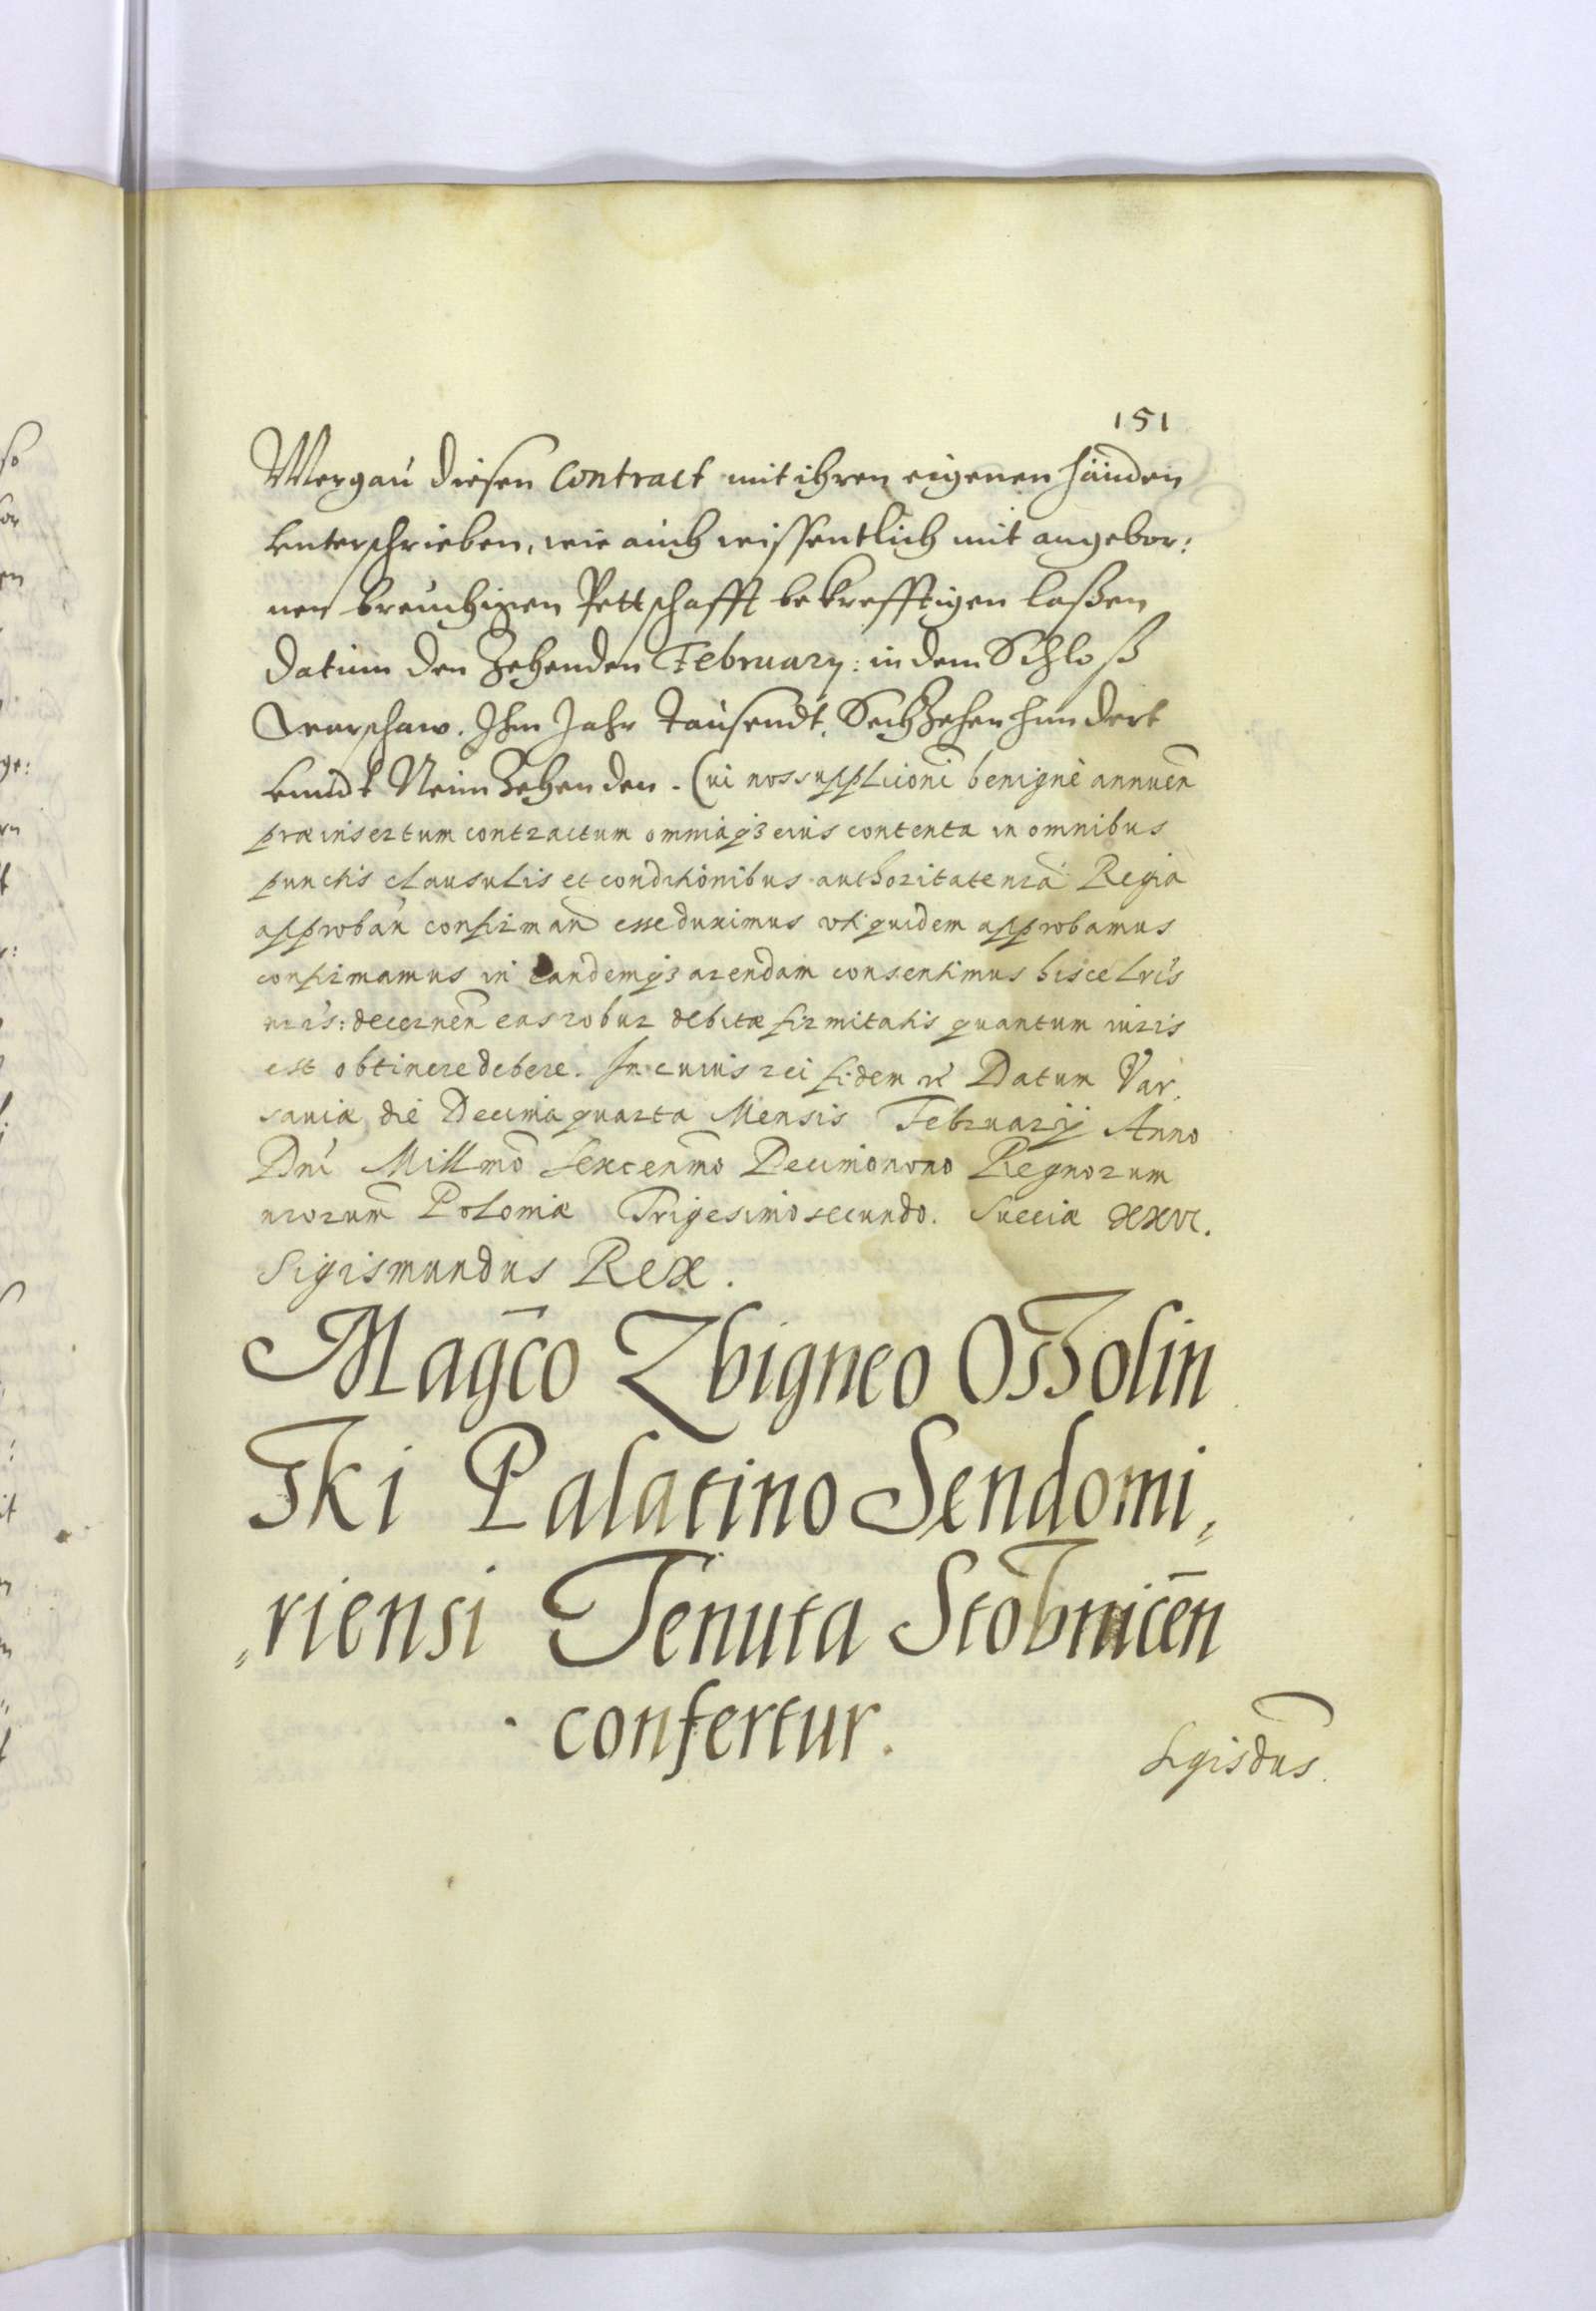 151
Mergau diesen Contract mit ihren eigenen händen
unterschrieben, wie auch wissentlich mit angebor:
nen breuchigen Pettschafft bekrefftigen laßen
datum den Zehenden February: in dem Schloß
Warschaw. Ihm Jahr Tausendt, Sechzehenhundert
unndt Neunzehenden. Cui nos supplicõni benignè annueñ
præinsertum contractum omniaq3 eius contenta in omnibus
punctis clausulis et conditionibus authoritate nrã Regia
approbañ confirmañ esse duximus uti quidem approbamus
confirmamus in eandemq3 arendam consentimus hisce lr̃is
nr̃is: decerneñ eas robur debitæ firmitatis quantum iuris
est obtinere debere. In cuius rei fidem &c Datum Var,
saviæ die Decima quarta Mensis Februarij Anno
Dñi Millmõ Sexcenmõ Decimonono Regnorum
nrorum̃ Poloniæ Trigesimo secundo. Sueciæ XXVI.
Sigismundus Rex.
Magc̃o Zbigneo Ossolin
ski Palatino Sendomi,,
,,riensi Tenuta Stobniceñ
confertur.
Sgisdus.